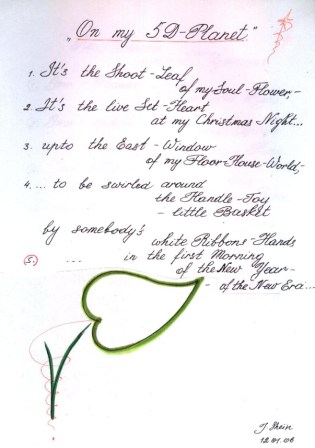 „On my 5D-Planet."
1. It's the Shoot-Leaf
of my Soul-Flower,-
2. It's the live Set-Heart
at my Christmas Night...
3. upto the East-Window
of my Floor-House-World,-
4. ... to be swirled around
the Handle-Toy
- little Basket
by somebody's
white Ribbons-Hands
(5.) ... in the first Morning
of the New Year-
- of the New Era...
12.01.06